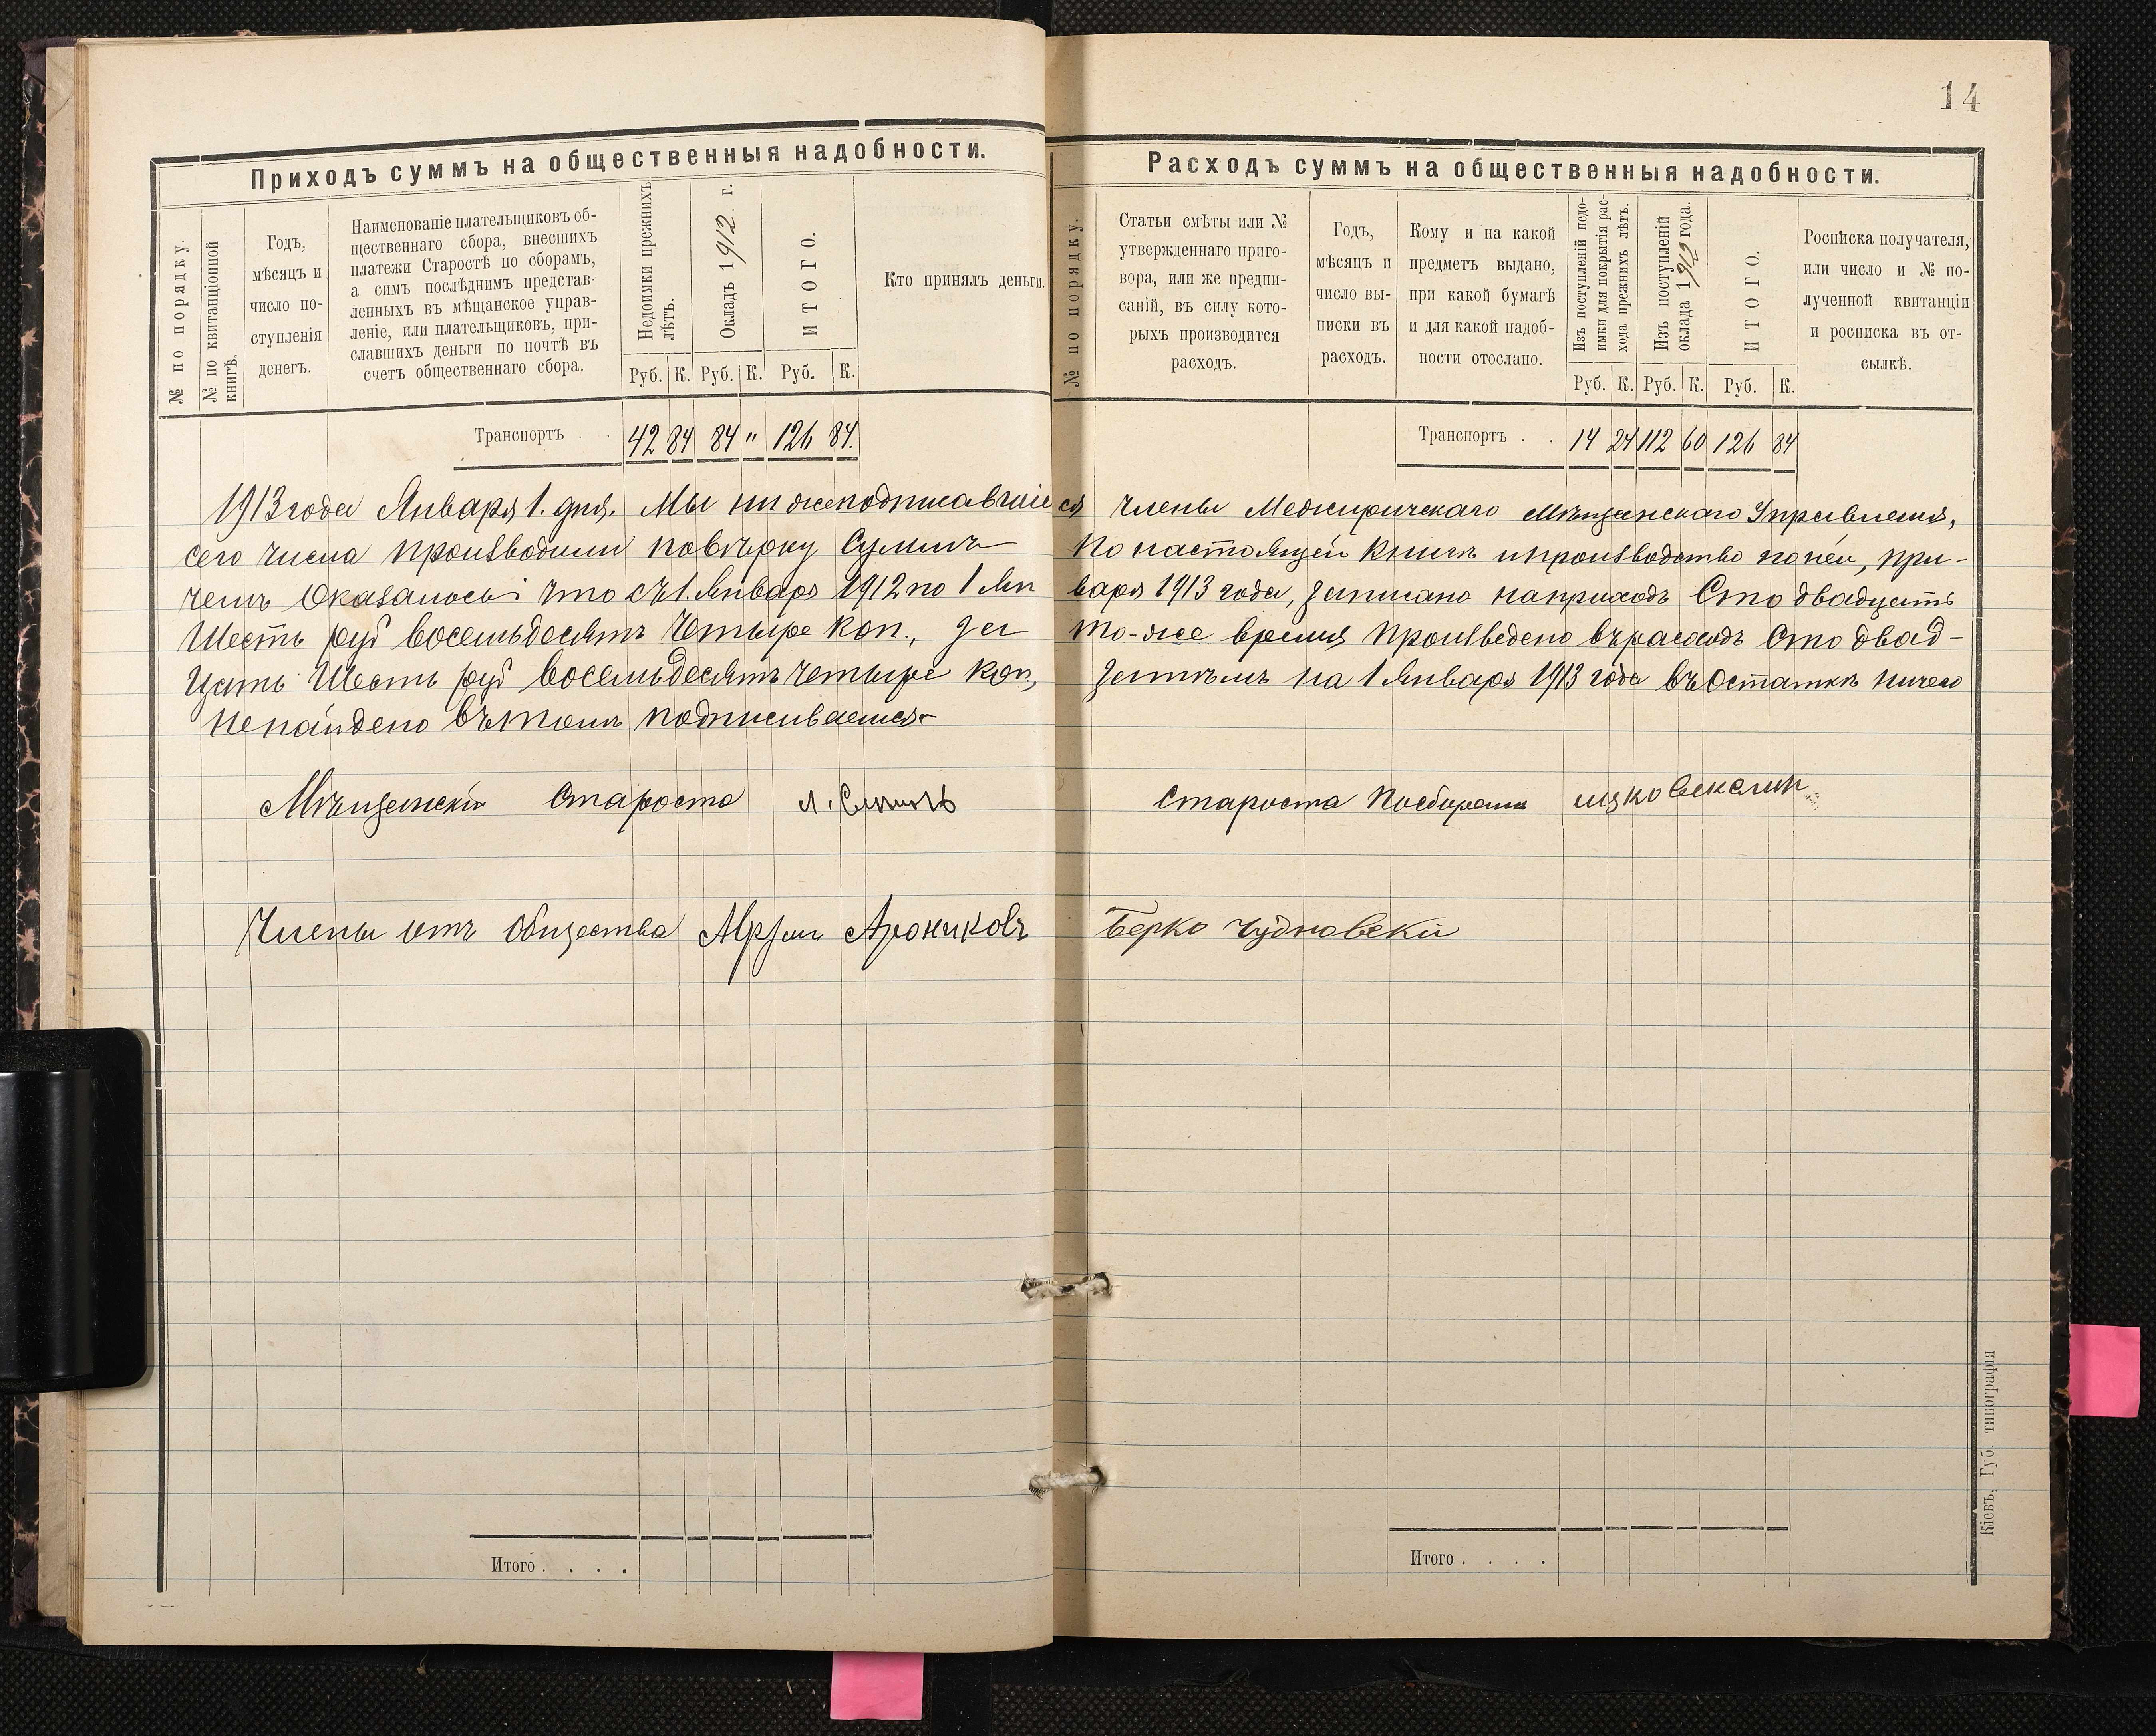 14
Приходъ суммъ на общественныя надобности.
№ по порядку.
№ по квитанціонной
книгѣ.
Годъ,
мѣсяцъ и
число по-
ступленія
денегъ.
Наименованіе плательщиковъ об-
щественнаго сбора, внесшихъ
платежи Старостѣ по сборамъ,
а симъ послѣднимъ представ-
ленныхъ въ мѣщанское управ-
леніе, или плательщиковъ, при-
славшихъ деньги по почтѣ въ
счетъ общественнаго сбора.
Недоимки прежнихъ
лѣтъ.
Окладъ 1912 г.
ИТОГО.
Кто принялъ деньги.
Руб. К. Руб. К. Руб. К.
Транспортъ . . 42 84 84 " 126 84.
Расходъ суммъ на общественныя надобности.
№ по порядку.
Статьи смѣты или №
утвержденнаго приго-
вора, или же предпи-
саній, въ силу кото-
рыхъ производится
расходъ.
Годъ,
мѣсяцъ и
число вы-
писки въ
расходъ.
Кому и на какой
предметъ выдано,
при какой бумагѣ
и для какой надоб-
ности отослано.
Изъ поступленій недо-
имки для покрытія рас-
хода прежнихъ лѣтъ.
Изъ поступленій
оклада 1912 года.
ИТОГО.
Росписка получателя,
или число и № по-
лученной квитанціи
и росписка въ от-
сылкѣ.
Руб. К. Руб. К. Руб. К.
Транспортъ . . 14 24 112 60 126 84
1913 года Января 1. дня. Мы нижеподписавшіеся члены Межиричскаго Мѣщанскаго Управленія,
сего числа производили повѣрку Суммъ по настоящей книгѣ и производство по ней, при-
чемъ Оказалось что съ 1. Января 1912 по 1 Января 1913 года, записано на приходъ Сто двадцать
Шесть руб восемьдесятъ Четыре коп., за то-же время произведено въ расходъ Сто двад-
цать Шесть руб восемьдесятъ четыре коп, затѣмъ на 1 Января 1913 года въ Остаткѣ ничего
не найдено въ томъ подписываемся
Мѣщанскій Староста Л.
Староста По сборамъ
Члены отъ Общества Арониковъ Берко Чудновскій
Итого . . . .
Итого . . . .
Кіевъ, Губ. типографія